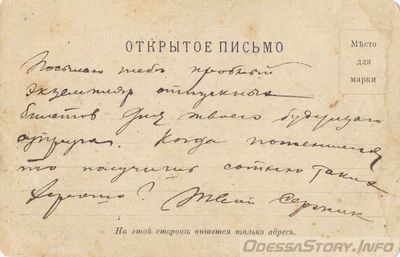 ОТКРЫТОЕ ПИСЬМО
Мѣсто
для
марки
Посылаю тебѣ пробный
экземпляр отпускных
билетов для твоего будущаго
супруга. Когда поженимся
то получишь сотню таких
Хорошо? Твой Сергник
На этой сторонѣ пишется только адресъ.
ODESSASTORY.INFO